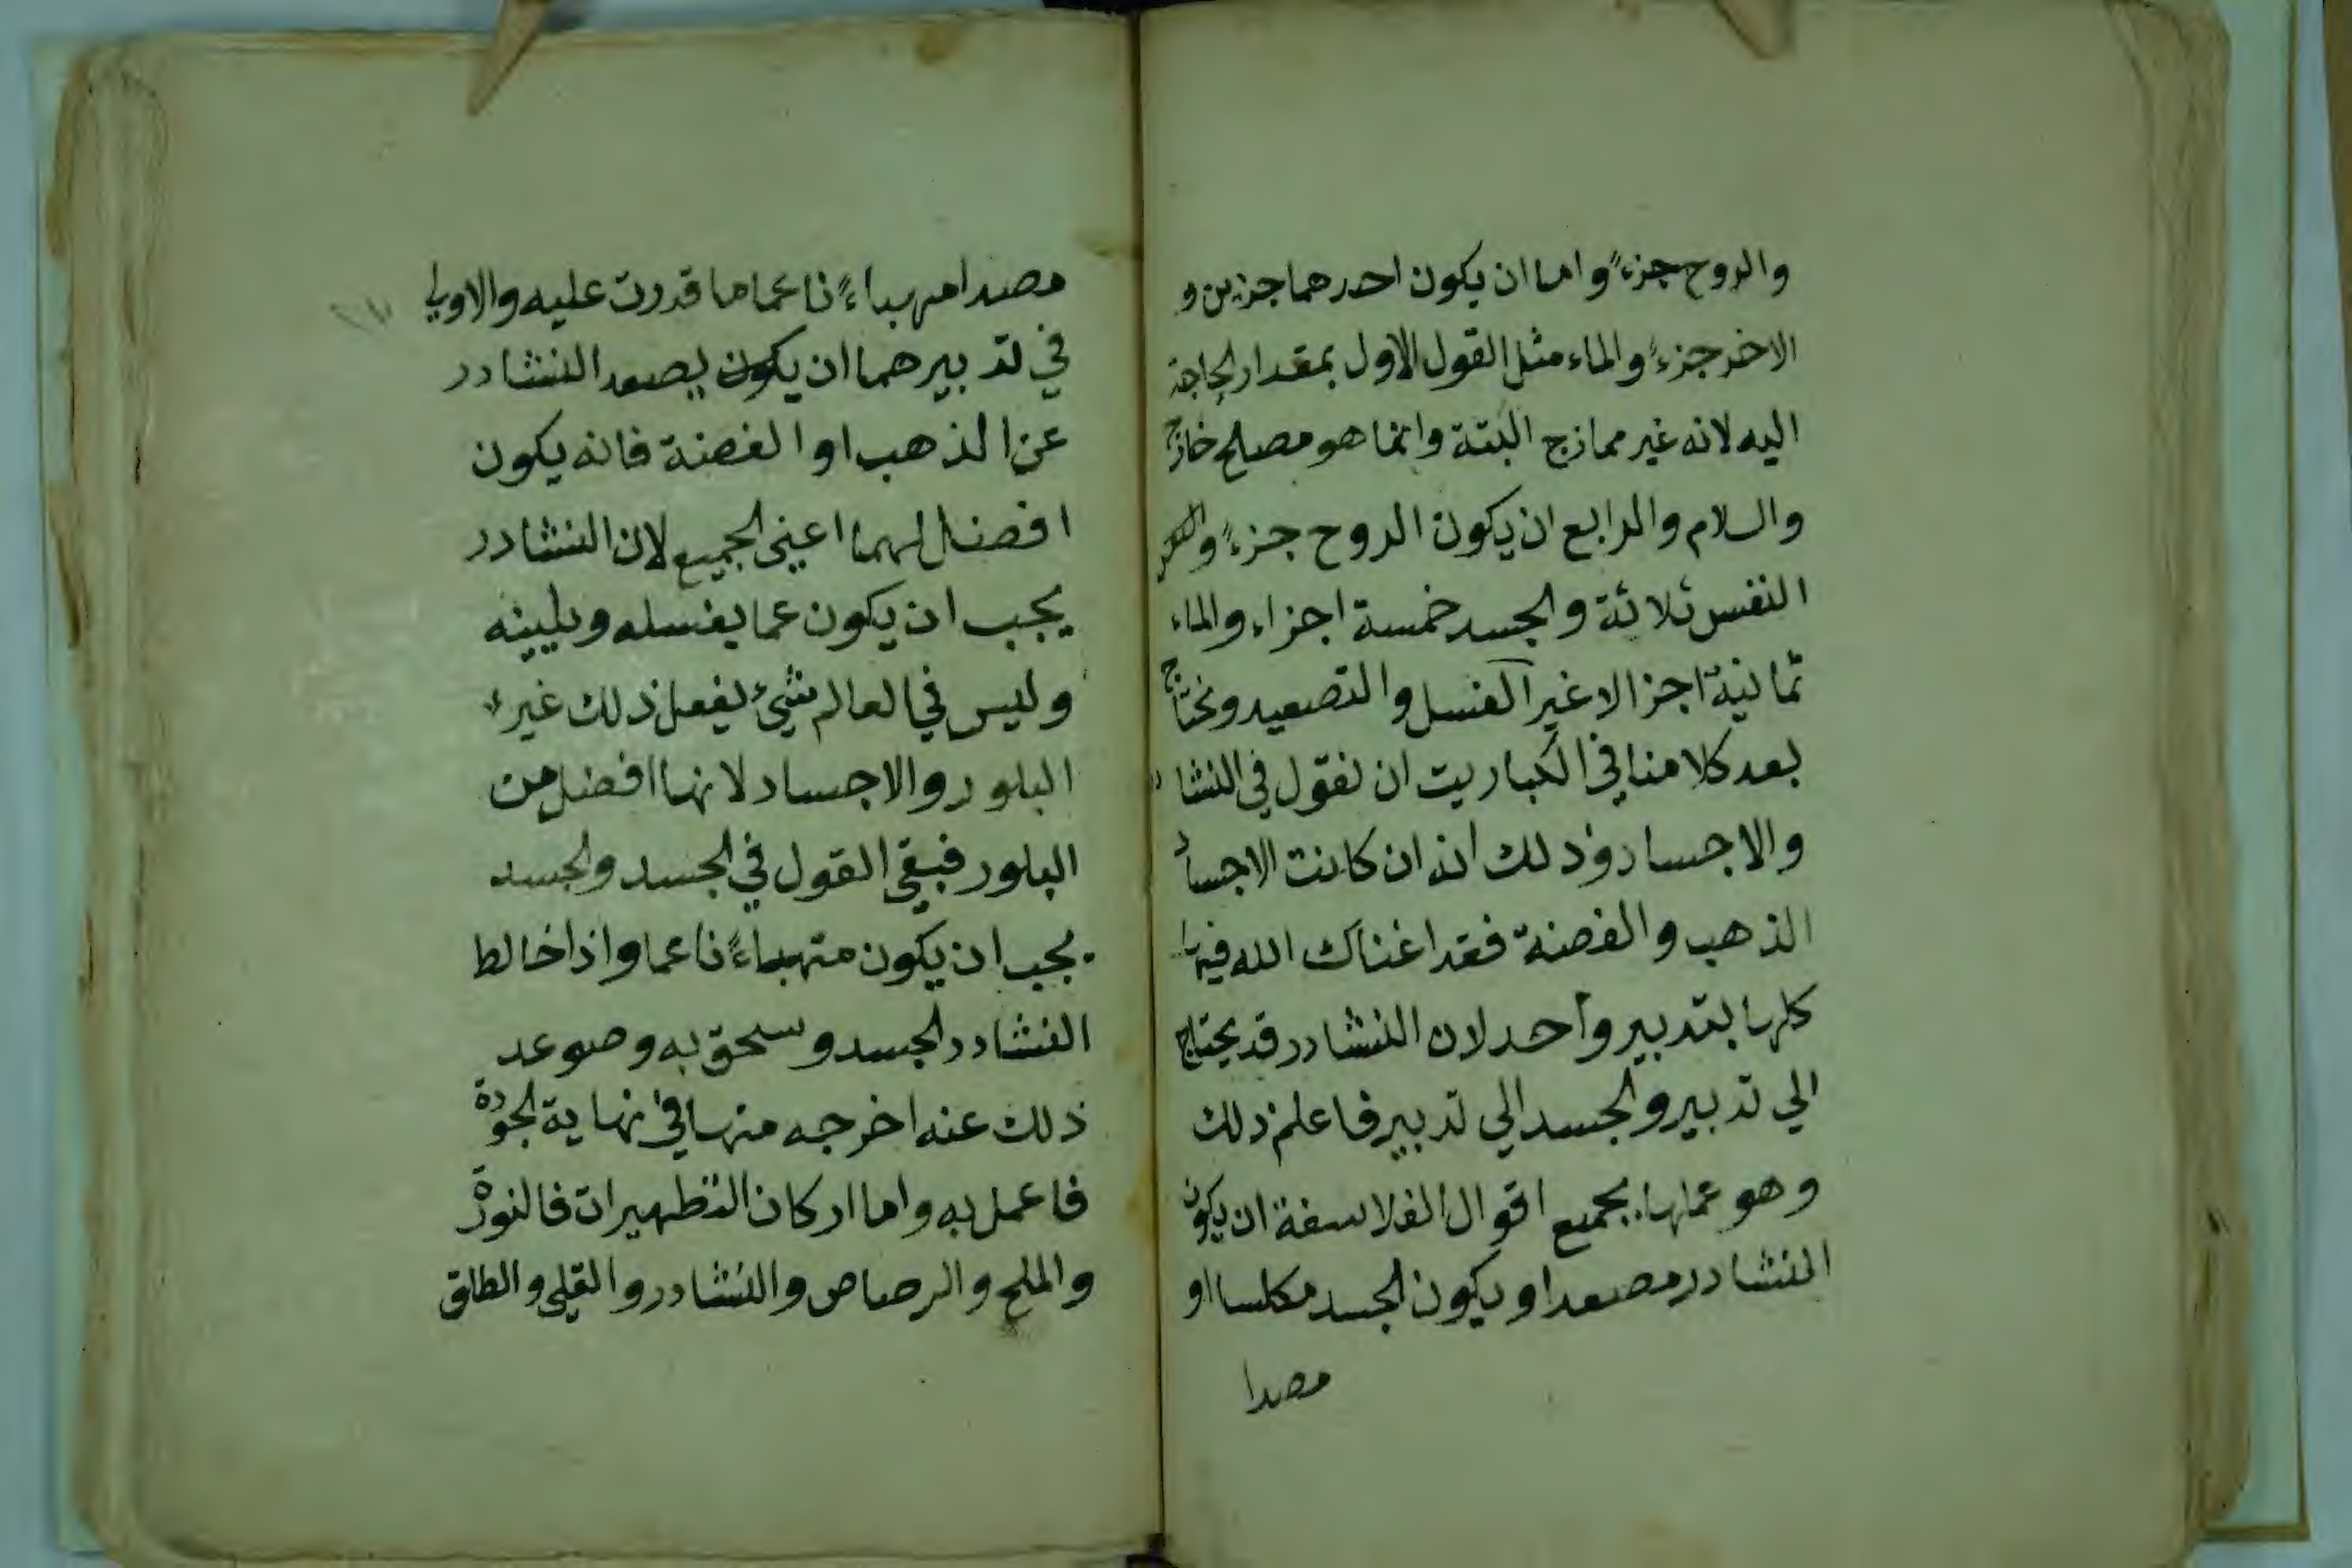 والروح جزءً واما ان يكون احدهما جزين و
الاخر جزءً والماء مثل القول الاول بمقدار الحاجة
اليه لانه غير ممازج البتة وانما هو مصلح خارج
والسلام والرابع ان يكون الروح جزءً و
النفس ثلاثة والجسد خمسة اجزاء والماء
ثمانية اجزا لا غير الغسل والتصعيد ونحتاج
بعد كلامنا في الكباريت ان نقول في النشادر
والاجساد وذلك انه ان كانت الاجساد
الذهب والفضة فقد اغناك الله فيها
كلها بتدبير واحد لان النشادر قد يحتاج
الي تدبير والجسد الي تدبير فاعلم ذلك
وهو عملها بجميع اقوال الفلاسفة ان يكون
النشادر مصعدا ويكون الجسد مكلسا او
مصدا
مصدا مهباءً ناعما ما قدرت عليه والاولي
في تدبيرهما ان يكون يصعد النشادر
عن الذهب او الفضة فانه يكون
افضل لهما اعني الجميع لان النشادر
يجب ان يكون عما يغسله ويلينه
وليس في العالم شيئ يفعل ذلك غير
البلور والاجساد لانها افضل من
البلور فبقي القول في الجسد والجسد
يجب ان يكون متهباءً ناعما واذا خالط
النشادر الجسد وسحق به وصوعد
ذلك عنه اخرجه منها في نهاية الجودة
فاعمل به واما اركان التطهيرات فالنورة
والملح والرصاص والنشادر والقلي والطلق